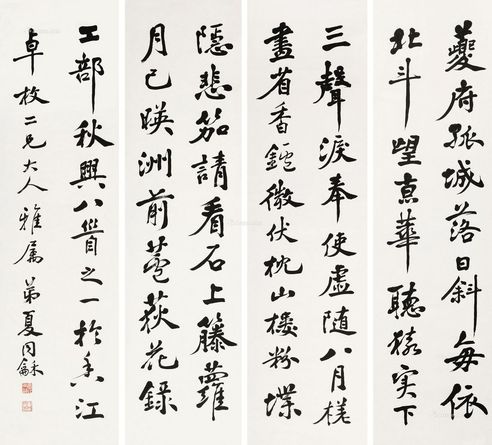 夔府孤城落日斜每依
北斗望京華聽猿实下
三聲淚奉使虛隨八月槎
畫省香鑪微伏枕山樓粉堞
隱悲笳請看石上籐蘿
月已暎洲前蘆荻花錄
工部秋興八首之一於江
卓枚二兄大人雅属 弟夏同龢